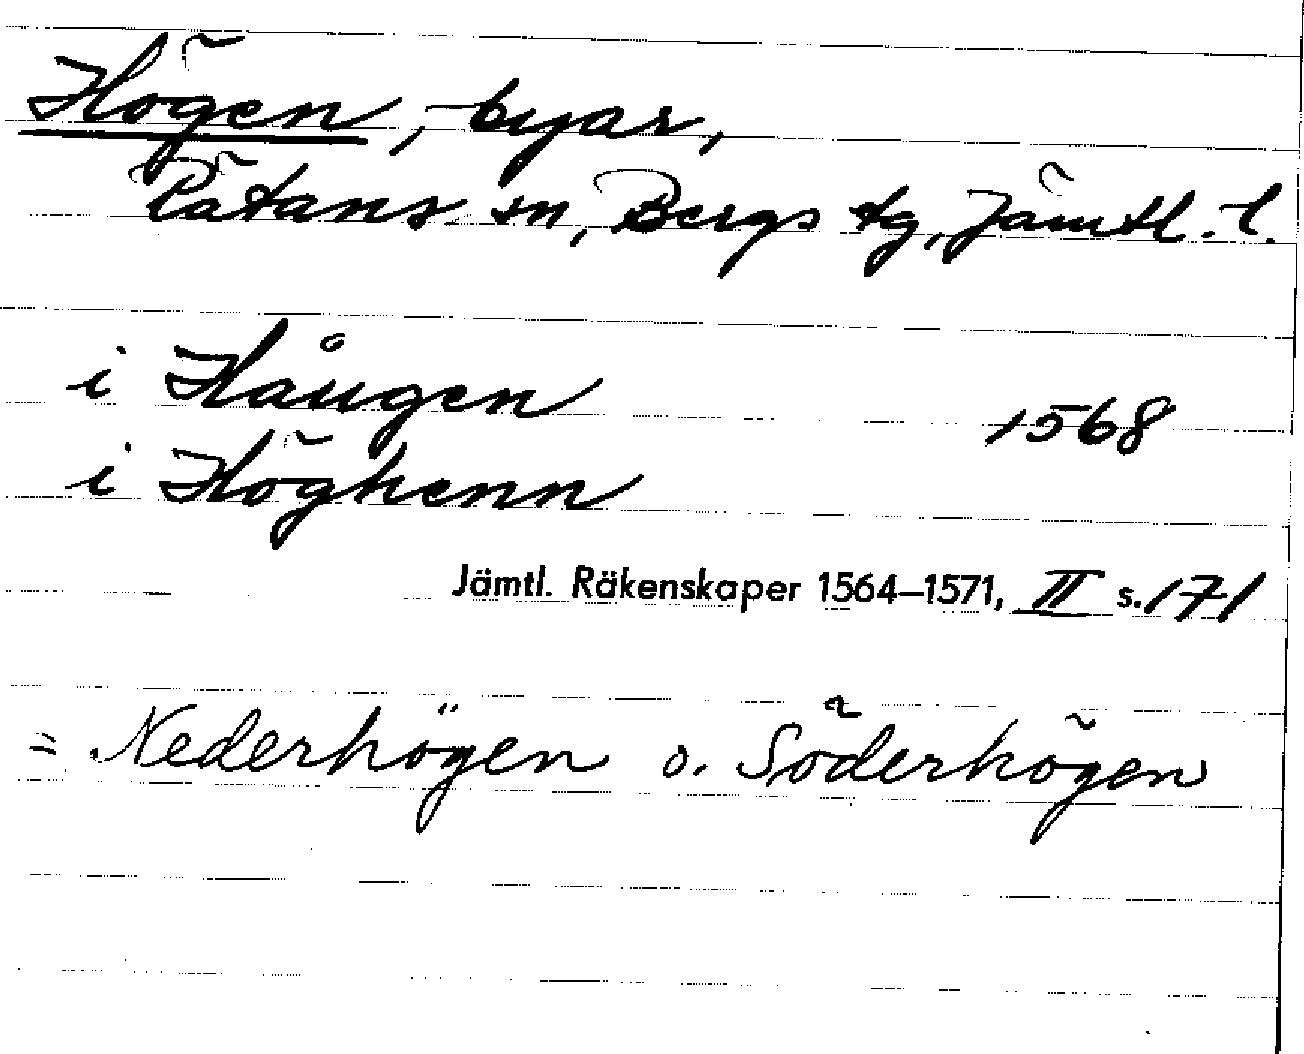 Högen, -byar,
Rätans sn, Bergs tg, Jämtl. l.
i Haůgen
i Höghenn 1568
Jämtl. Räkenskaper 1564–1571, II s. 171
= Nederhögen o. Söderhögen